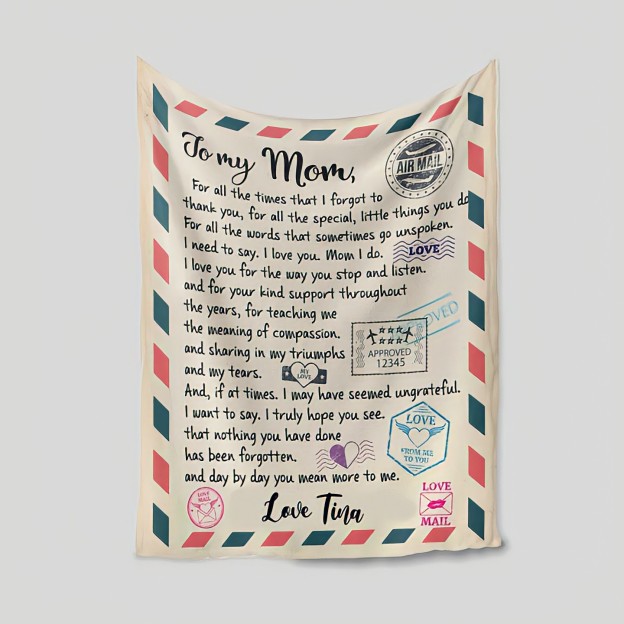 To my Mom,
AIR MAIL
For all the times that I forgot to
thank you, for all the special, little things you do
For all the words that sometimes go unspoken.
I need to say. I love you. Mom I do.
LOVE
I love you for the way you stop and listen.
and for your kind support throughout
the years, for teaching me
the meaning of compassion.
APPROVED
12345
and sharing in my triumphs
and my tears.
MY
LOVE
And, if at times. I may have seemed ungrateful.
I want to say. I truly hope you see.
LOVE
FROM ME
TO YOU
that nothing you have done
has been forgotten.
and day by day you mean more to me.
LOVE
MAIL
Love Tina
LOVE
MAIL